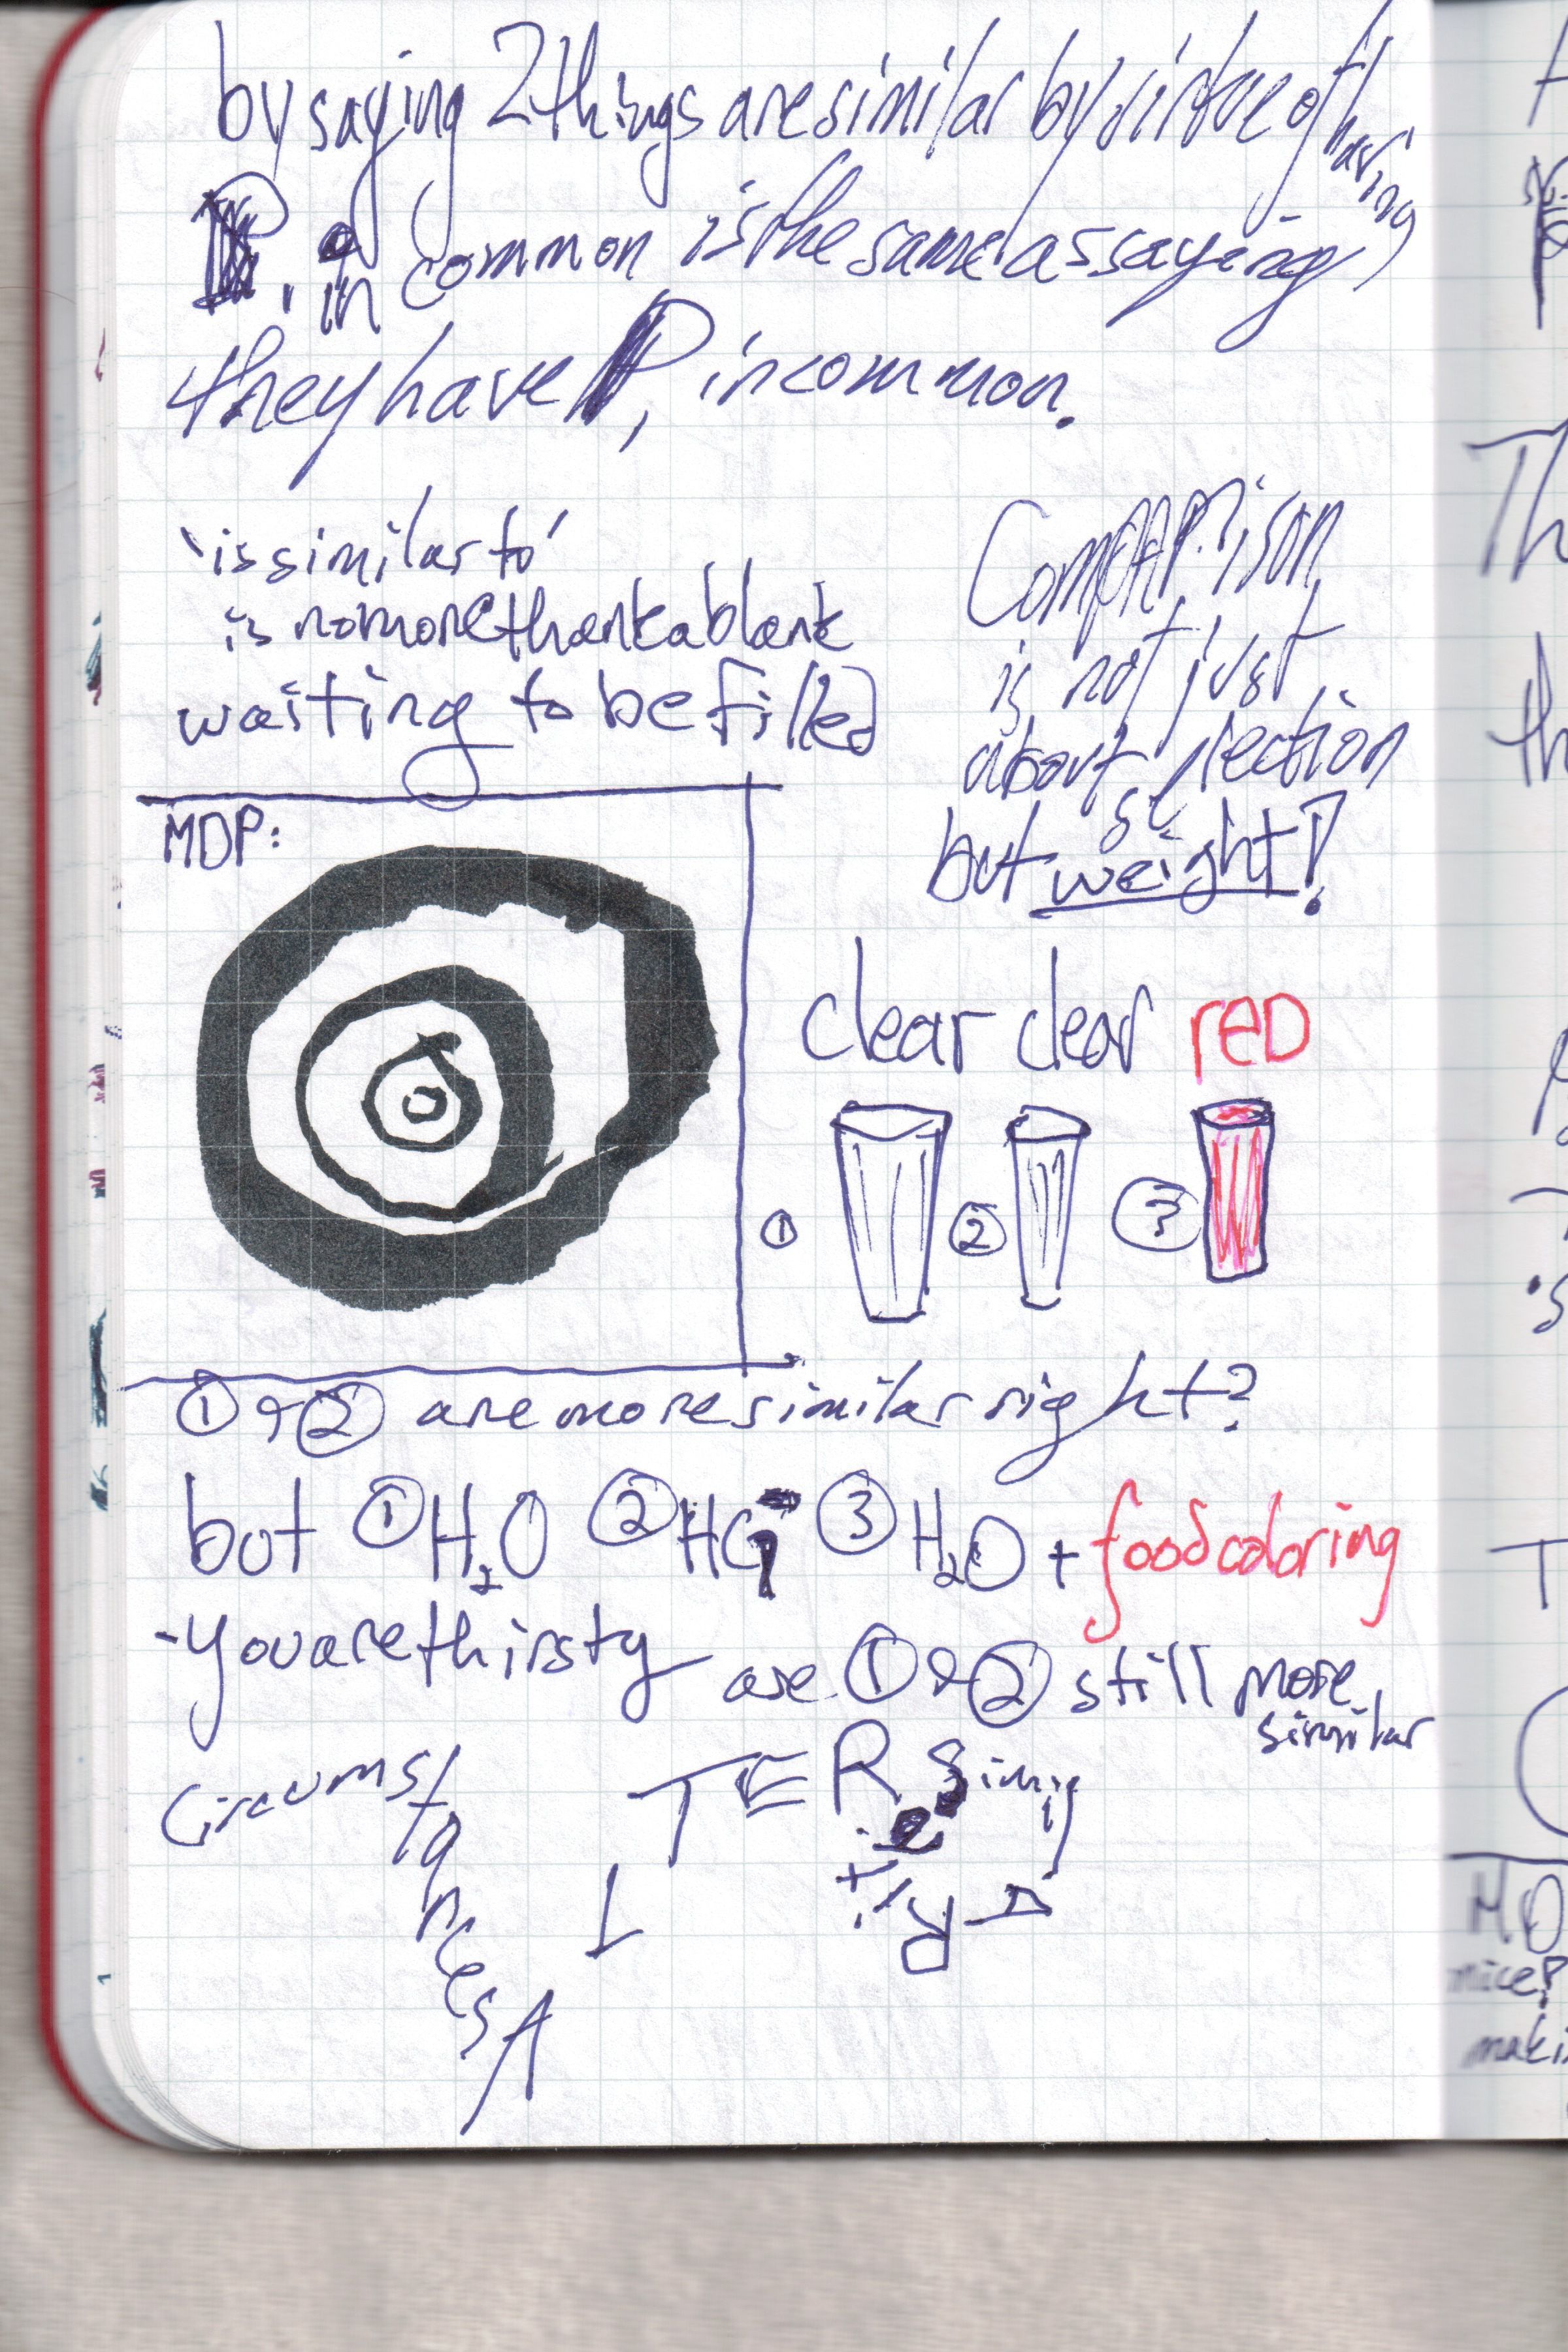 by saying 2 things are similar by virtue of having
P, in common is the same as saying
they have P, in common.
'is similar to'
is no more than a blank
waiting to be filled
Comparison
is not just
about selection
but weight!
MDP:
clear clear red
① ② ③
① & ② are more similar right?
but ① H2O ② HCl ③ H2O + food coloring
- you are thirsty are ① & ② still more
similar
Circumstances ALTER
Th
th
MD
mice?
maki